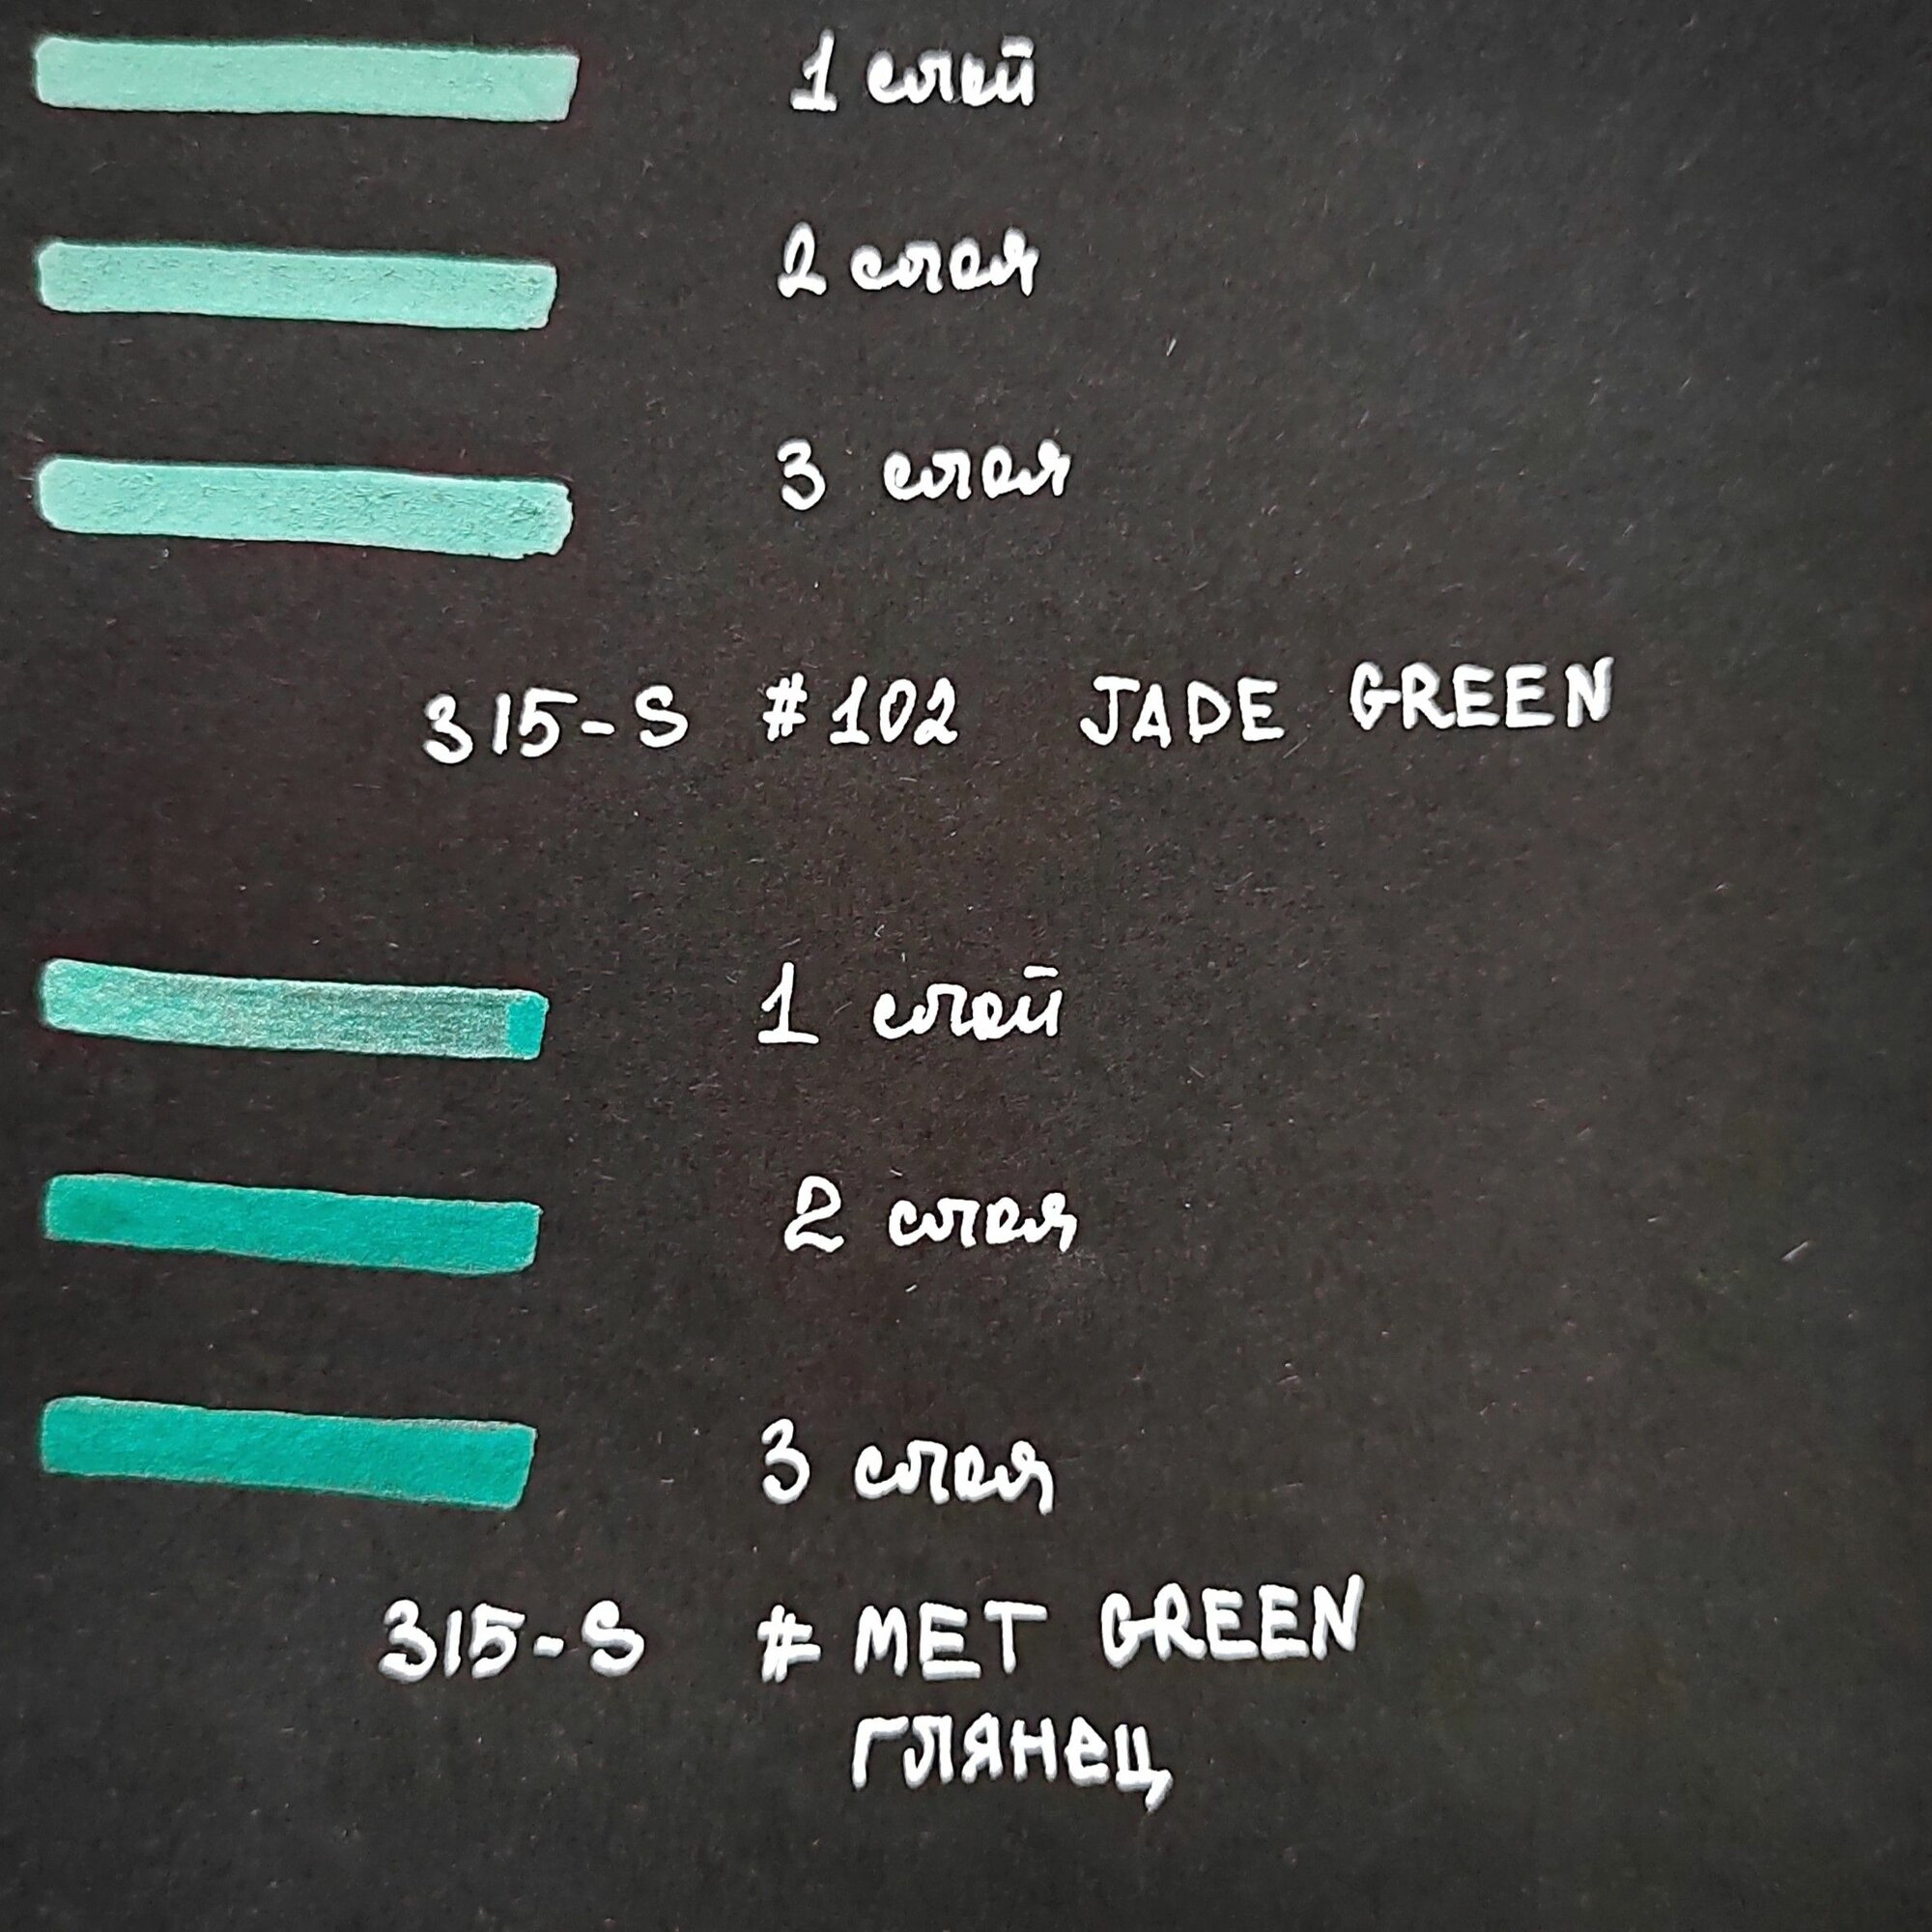 1 слой
2 слоя
3 слоя
315-S #102 JADE GREEN
1 слой
2 слоя
3 слоя
315-S # MET GREEN
глянец